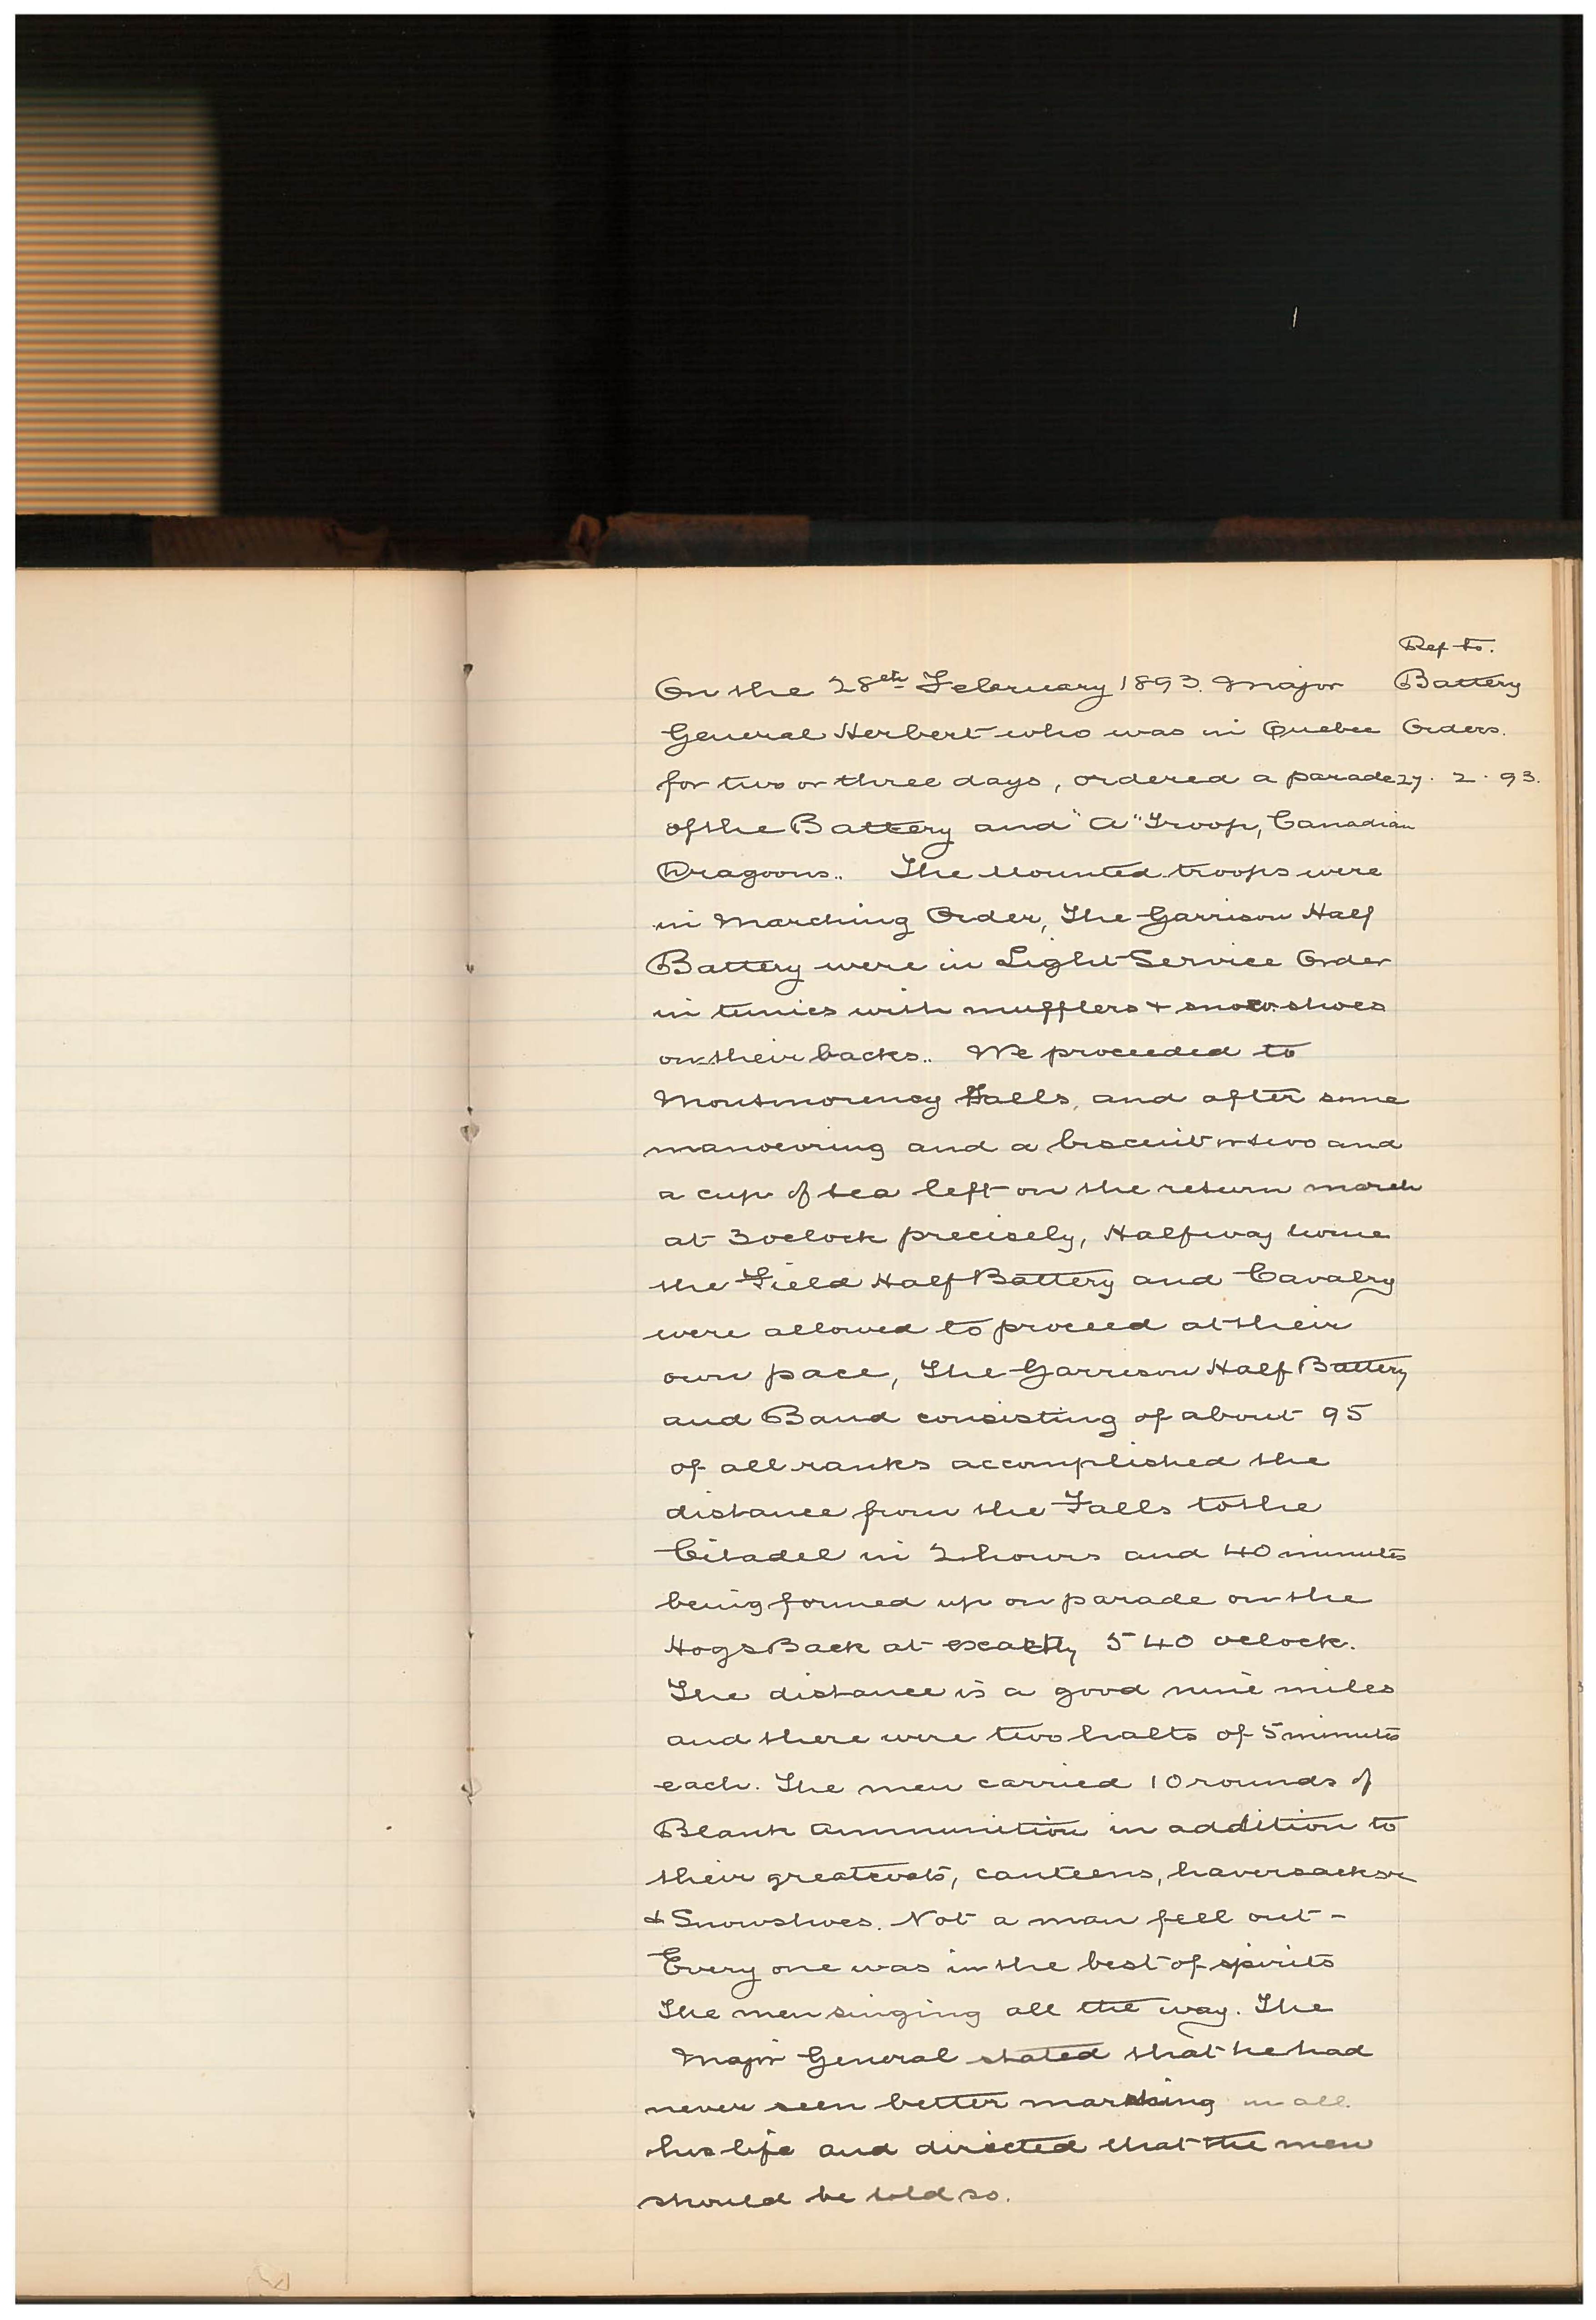 Ref to.
On the 28th February 1893. Major Battery
General Herbert who was in Quebec Orders.
for two or three days, ordered a parade 27. 2. 93.
of the Battery and "A" Troop, Canadian
Dragoons.. The Mounted troops were
in Marching Order, The Garrison Half
Battery were in Light Service Order
in tunics with mufflers & snow shoes
on their backs.. We proceeded to
Montmorency Falls, and after some
manoevring and a biscuit or two and
a cup of tea left on the return march
at 3 oclock precisely, Halfway home
the Field Half Battery and Cavalry
were allowed to proceed at their
own pace, The Garrison Half Battery
and Band consisting of about 95
of all ranks accomplished the
distance from the Falls to the
Citadel in 2 hours and 40 minutes
being formed up on parade on the
Hogs Back at exactly 5 40 oclock.
The distance is a good nine miles
and there were two halts of 5 minutes
each. The men carried 10 rounds of
Blank Ammunition in addition to
their greatcoats, canteens, haversacks
& Snowshoes. Not a man fell out -
Every one was in the best of spirits
The men singing all the way. The
Major General stated that he had
never seen better marching in all
his life and directed that the men
should be told so.